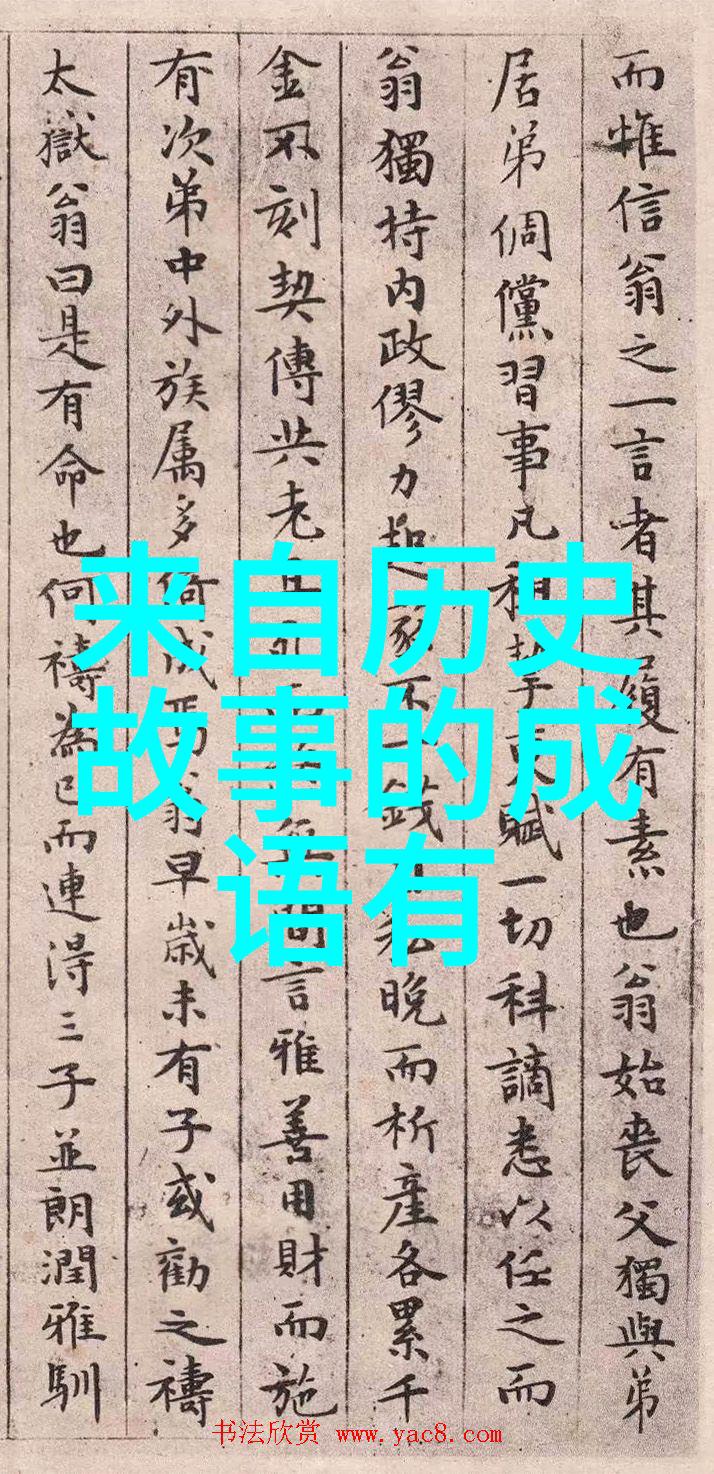 而惟信翁之一言者其履有素也翁始喪父獨與弟
居弟倜儻習事凡租挈更賦一切科謫悉以任之而
翁獨持内政僇力起家不一錢自私晚而析產各累千
金不刻契傳共老無間言雅善用財而施
有次第中外族属多倚成焉翁早歲未有子或勸之禱
太嶽翁曰是有命也何禱為已而連得三子並朗潤雅馴
来自历史
故事的成
语有
书法欣赏 www.yac8.com